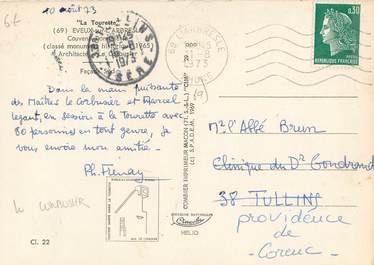 6€
10 août 73
"La Tourette"
(69) EVEUX-sur-L'ARBRESLE
Couvent
(classé monument historique 1965)
Architecte : Le Corbusier
TULLINS
1973
ISÈRE
69 L'ARBRESLE
1973
RHONE
0,30
Dans la main puissante
des Maîtres Le Corbusier et Marcel
Legaut, en session à la Tourette avec
80 personnes en tout genre, je
vous envoie mon amitié.
Ph. Flenay
Le CORBUSIER
Cl. 22
COMBIER IMPRIMEUR MACON (71 S.-&-L.) "CIM"
(c) S.P.A.D.E.M. 1969
HELIO
(9)
Mr l'Abbé Brun
Clinique du Dr Gondrand
38 TULLINS
providence
de
- Corenc -